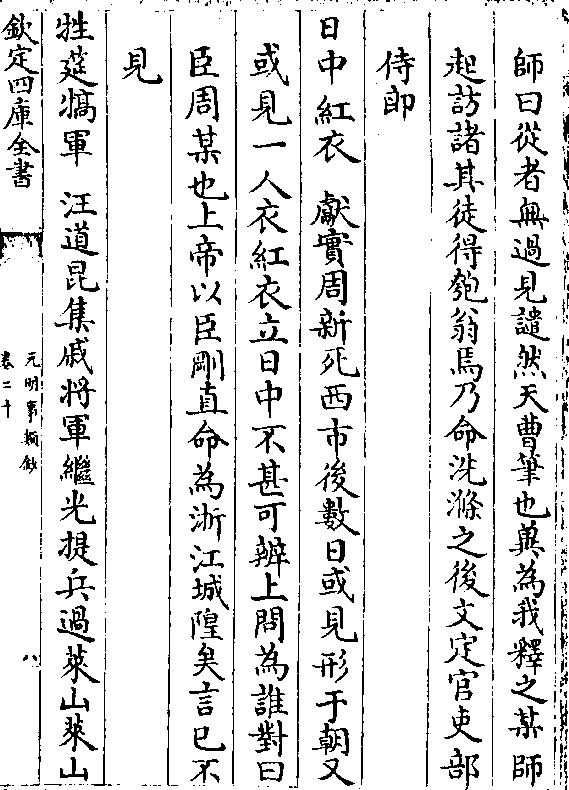 師曰從者無過見譴然天曹筆也奠為我釋之某師
起訪諸其徒得匏翁焉乃命洗滌之後文定官吏部
侍郎
日中紅衣　獻實周新死西市後數日或見形于朝又
或見一人衣紅衣立日中不甚可辨上問為誰對曰
臣周某也上帝以臣剛直命為浙江城隍矣言已不
見
牲筵犒軍　汪道昆集戚將軍繼光提兵過萊山萊山
欽定四庫全書
元明事類鈔
卷二十
八